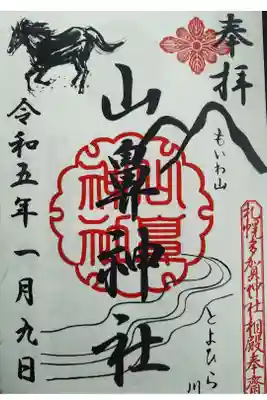 奉拝
もいわ山
札幌多賀神社相殿奉斎
山鼻神社
山鼻神社
とよひら川
令和五年一月九日